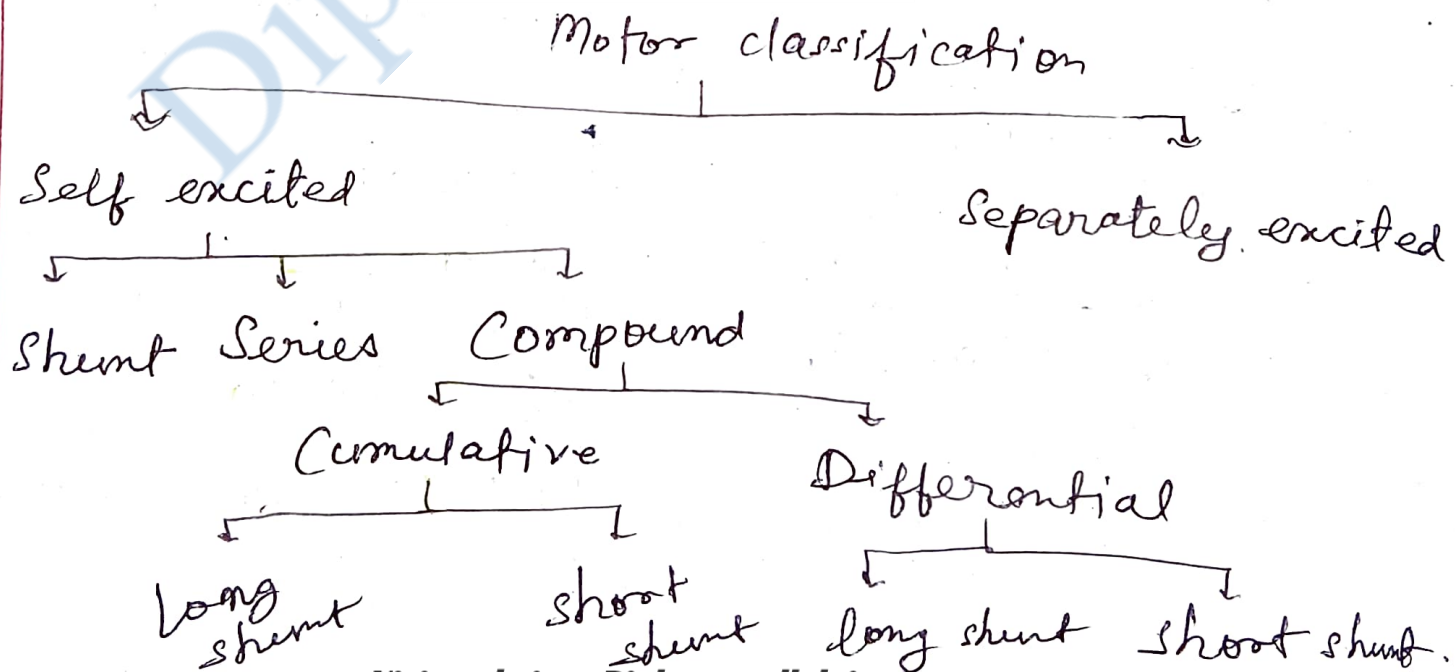 Motor classification
Self excited
Separately excited
Shunt Series Compound
Cumulative
Differential
Long shunt
short shunt
long shunt
short shunt.